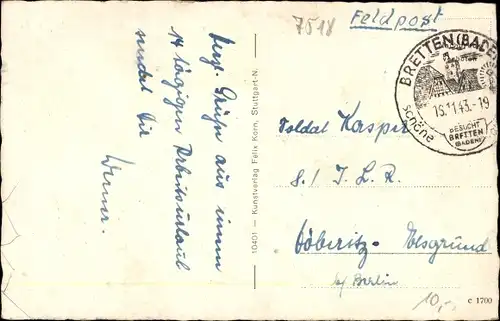 7518
Feldpost
BRETTEN (BADEN)
15.11.43.-19
BESUCHT
BRETTEN
(BADEN)
Herzl. Grüße aus einem
14 tägigen Arbeitsurlaub
sendet Dir
Werner.
10401 — Kunstverlag Felix Korn, Stuttgart-N.
Soldat Kasper
8./ J. L. R.
Döberitz-Elsgrund
b/ Berlin
c 1700
10,-